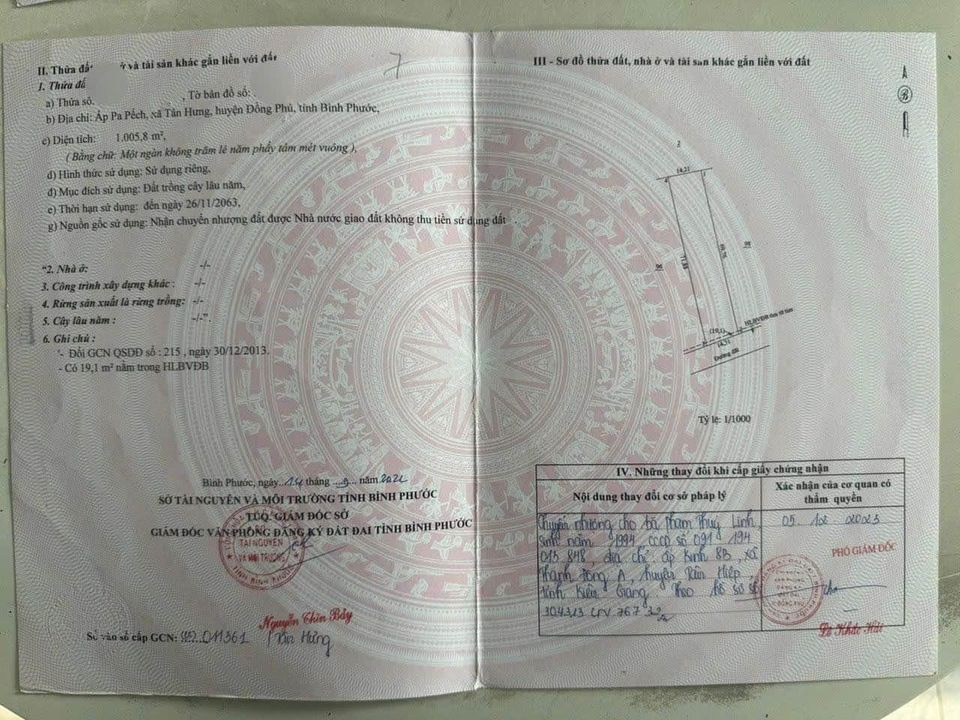 7
II. Thửa đấ ở và tài sản khác gắn liền với đất
1. Thửa đấ
a) Thửa số. , Tờ bản đồ số:
b) Địa chỉ: Ấp Pa Pếch, xã Tân Hưng, huyện Đồng Phú, tỉnh Bình Phước,
c) Diện tích: 1.005,8 m²,
( Bằng chữ: Một ngàn không trăm lẻ năm phẩy tám mét vuông ),
d) Hình thức sử dụng: Sử dụng riêng,
đ) Mục đích sử dụng: Đất trồng cây lâu năm,
e) Thời hạn sử dụng: đến ngày 26/11/2063,
g) Nguồn gốc sử dụng: Nhận chuyển nhượng đất được Nhà nước giao đất không thu tiền sử dụng đất .
"2. Nhà ở: -/-
3. Công trình xây dựng khác : -/-
4. Rừng sản xuất là rừng trồng: -/-
5. Cây lâu năm : -/-".
6. Ghi chú :
- Đổi GCN QSDĐ số : 215 , ngày 30/12/2013.
- Có 19,1 m² nằm trong HLBVĐB
Bình Phước, ngày 14 tháng 9 năm 2022
SỞ TÀI NGUYÊN VÀ MÔI TRƯỜNG TỈNH BÌNH PHƯỚC
TUQ. GIÁM ĐỐC SỞ
GIÁM ĐỐC VĂN PHÒNG ĐĂNG KÝ ĐẤT ĐAI TỈNH BÌNH PHƯỚC
SỞ
TÀI NGUYÊN
VÀ MÔI TRƯỜNG
TỈNH BÌNH PHƯỚC
Nguyễn Chín Bảy
Số vào sổ cấp GCN: 011361 / Tân Hưng
III - Sơ đồ thửa đất, nhà ở và tài sản khác gắn liền với đất
A
B
2
14,21
71,88
HLBVĐB
(19,1)
14,21
Đường đất
Tỷ lệ: 1/1000
IV. Những thay đổi khi cấp giấy chứng nhận
Nội dung thay đổi cơ sở pháp lý
Xác nhận của cơ quan có thẩm quyền
Chuyển nhượng cho bà Phạm Thùy Linh,
sinh năm 1994 CCCD số 091 194
015 848, địa chỉ ấp Kinh 8B, xã
Thạnh Đông A, huyện Tân Hiệp
tỉnh Kiên Giang theo hồ sơ số
304313 CNV 767
05 2023
PHÓ GIÁM ĐỐC
Lê Khắc